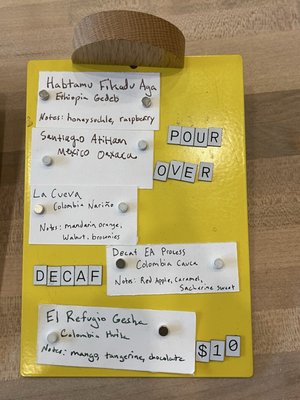 Habtamu Fikadu Aga
Ethiopia Gedeb
Notes: honeysuckle, raspberry
POUR
Santiago Atitlan
Mexico Oaxaca
OVER
La Cueva
Colombia Nariño
Notes: mandarin orange,
Walnut brownies
Decaf EA Process
Colombia Cauca
DECAF
Notes: Red Apple, Caramel,
Sacharine sweet
El Refugio Gesha
Colombia Huila
Notes: mango, tangerine, chocolate
$10